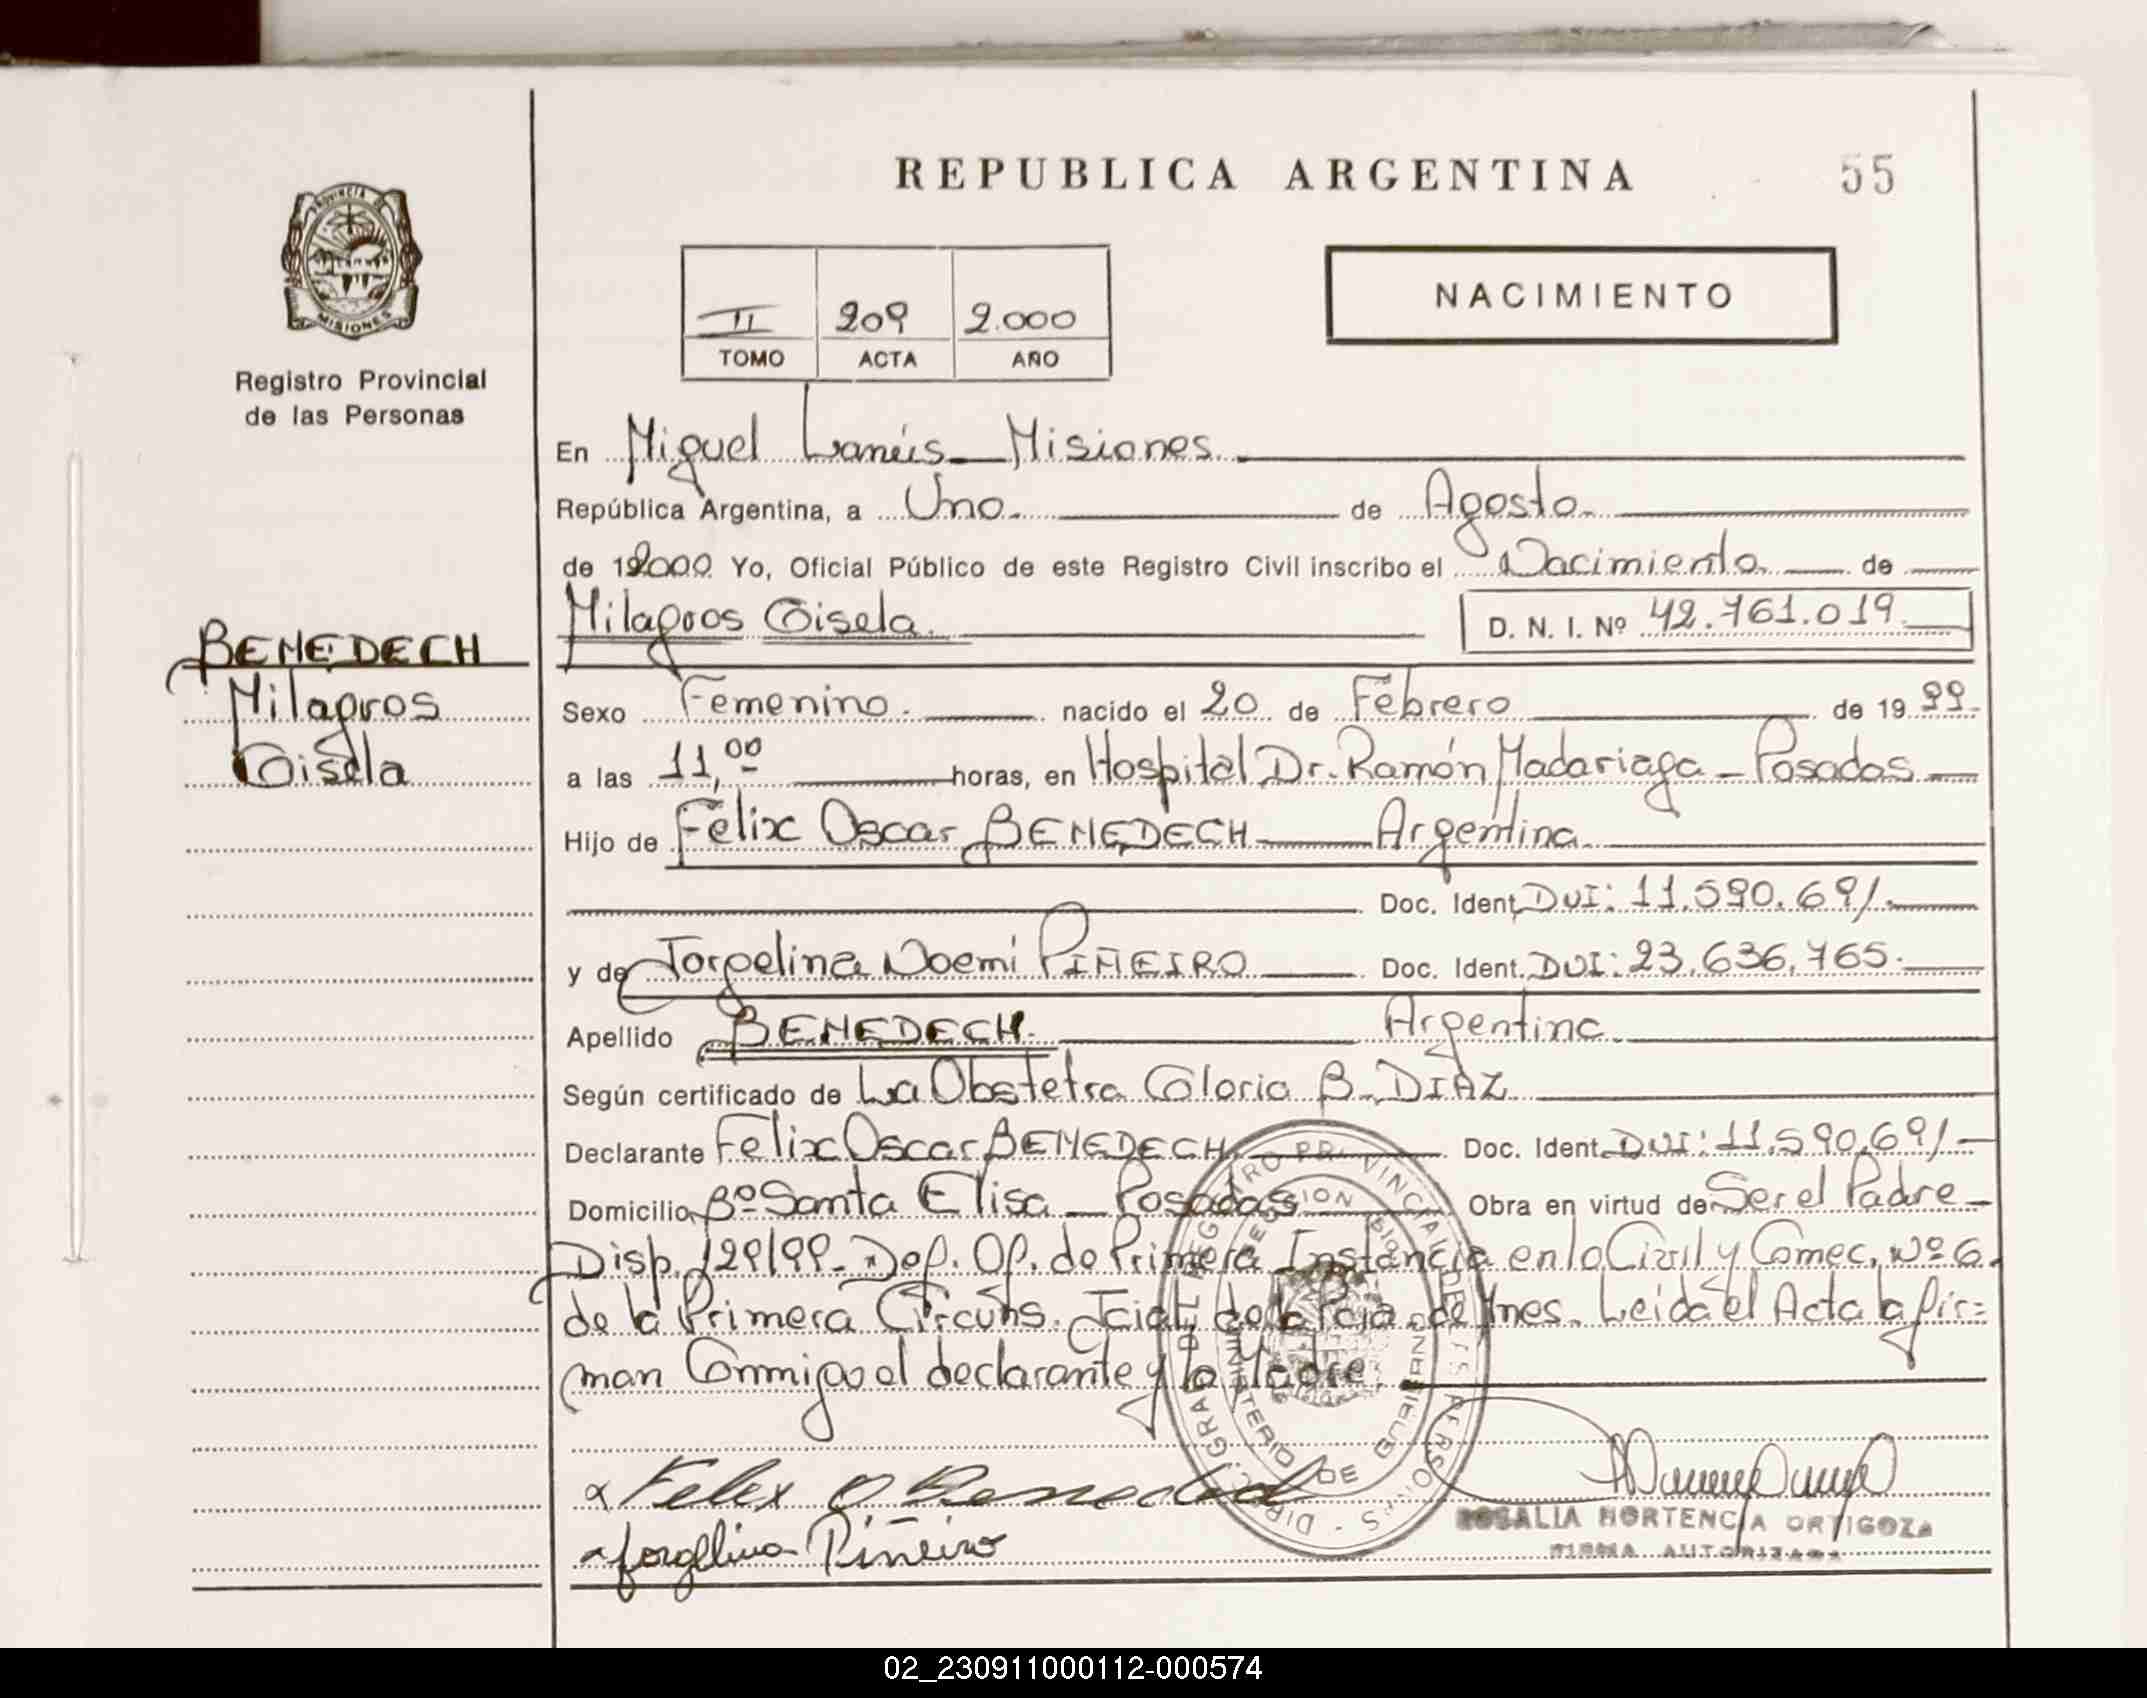 REPUBLICA ARGENTINA
55
PROVINCIA DE
MISIONES
Registro Provincial
de las Personas
II 209 2.000
TOMO ACTA AÑO
NACIMIENTO
En Miguel Lanús - Misiones.
República Argentina, a Uno. de Agosto.
de 19 2000. Yo, Oficial Público de este Registro Civil inscribo el Nacimiento de
Milagros Gisela.
D. N. I. Nº 42.761.019.
BENEDECH
Milagros
Gisela
Sexo Femenino. nacido el 20 de Febrero de 19 99.
a las 11,00 horas, en Hospital Dr. Ramón Madariaga - Posadas
Hijo de Félix Oscar BENEDECH Argentina.
Doc. Ident. DNI: 11.590.691.
y de Jorgelina Noemi PIÑEIRO Doc. Ident. DNI: 23.636.765.
Apellido BENEDECH. Argentina.
Según certificado de La Obstetra Gloria B. DIAZ
Declarante Felix Oscar BENEDECH Doc. Ident. DNI: 11.590.691
Domicilio Bº Santa Elisa - Posadas Obra en virtud de Ser el Padre
Disp. 129/99 - Def. Of. de Primera Instancia en lo Civil y Comec. Nº 6.
de la Primera Circuns. Jcial, de la Pcia. de Mnes. Leida el Acta la fir=
man Conmigo el declarante y la Madre
Felix O Benedech
Jorgelina Piñeiro
DIRC. GRAL. DEL REGISTRO PROVINCIAL DE LAS PERSONAS
MINISTERIO DE GOBIERNO
ROSALIA HORTENCIA ORTIGOZA
FIRMA AUTORIZADA
02_230911000112-000574